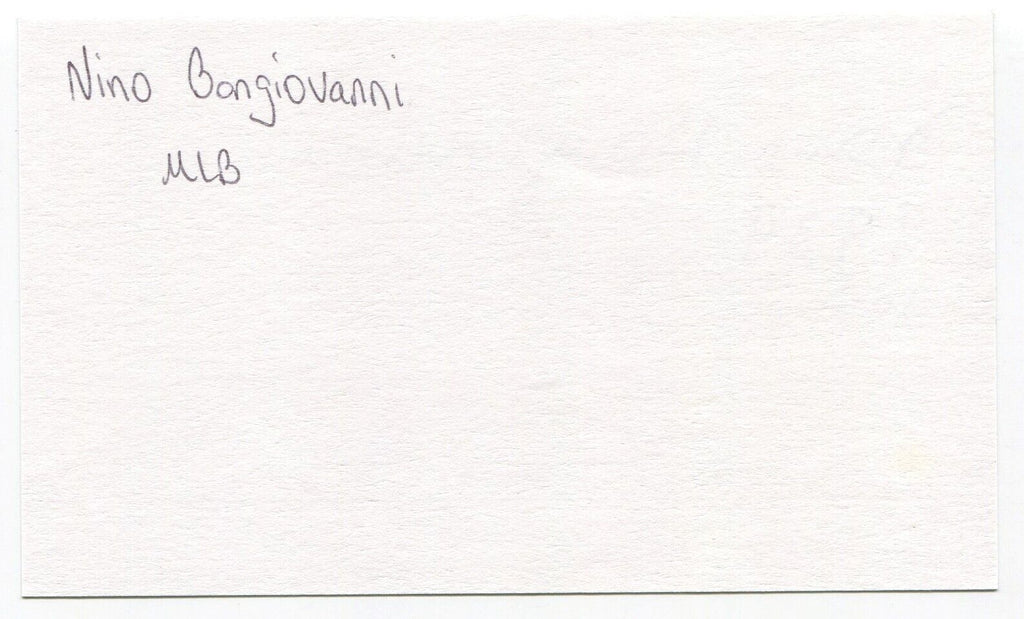 Nino Bongiovanni
MLB